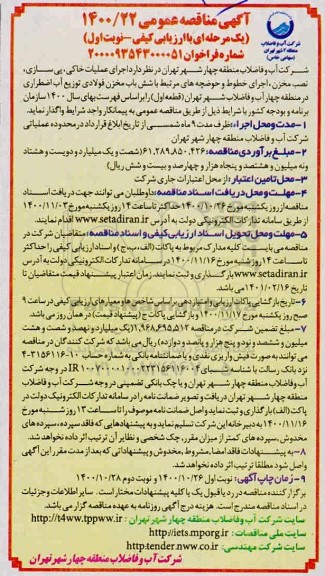 آگهی مناقصه عمومی ۱۴۰۰/۲۲
(یک مرحله ای با ارزیابی کیفی – نوبت اول)
شماره فراخوان ۲۰۰۰۰۹۳۵۴۳۰۰۰۰۵۱
شرکت آب و فاضلاب
منطقه ۴ شهر تهران
(سهامی خاص)
شرکت آب و فاضلاب منطقه چهار شهر تهران در نظر دارد اجرای عملیات خاکی، پی سازی،
نصب مخزن، اجرای خطوط و حوضچه های مرتبط با شش باب مخزن فولادی توزیع آب اضطراری
در منطقه چهار آب و فاضلاب شهر تهران (قطعه اول) را بر اساس فهرست بهای سال ۱۴۰۰ سازمان
برنامه و بودجه کشور با شرایط ذیل از طریق مناقصه عمومی به پیمانکار واجد شرایط واگذار نماید.
۱- مدت و محل اجرا: ظرف مدت ۹ ماه شمسی از تاریخ ابلاغ قرارداد در محدوده عملیاتی
منطقه چهار شهر تهران
۲- مبلغ برآوردی مناقصه: ۶۱,۲۸۹,۸۵۰,۴۲۶ (شصت و یک میلیارد و دویست و هشتاد
و نه میلیون و هشتصد و پنجاه هزار و چهارصد و بیست و شش ریال)
۳- محل تامین اعتبار: از محل اعتبارات جاری شرکت
۴- مهلت و محل دریافت اسناد مناقصه: داوطلبان می توانند جهت دریافت اسناد
مناقصه از روز یکشنبه مورخ ۱۴۰۰/۱۰/۲۶ حداکثر تا ساعت ۱۴ روز یکشنبه مورخ ۱۴۰۰/۱۱/۰۳
از طریق سامانه تدارکات الکترونیکی دولت به آدرس www.setadiran.ir اقدام نمایند.
۵- مهلت و محل تحویل اسناد ارزیابی کیفی و اسناد مناقصه: متقاضیان شرکت در
مناقصه می بایست کلیه مدارک مربوط به پاکات (الف، ب، ج) و اسناد ارزیابی کیفی را حداکثر
تا ساعت ۱۴ روز شنبه مورخ ۱۴۰۰/۱۱/۱۶ در سامانه تدارکات الکترونیکی دولت به آدرس
www.setadiran.ir بارگذاری و ثبت نمایند. زمان اعتبار پیشنهاد قیمت متقاضیان تا
تاریخ ۱۴۰۱/۰۲/۱۶ می باشد.
۶- تاریخ بازگشایی پاکات ارزیابی و امتیازدهی بر اساس شاخص ها و معیارهای ارزیابی کیفی در ساعت ۹
صبح روز یکشنبه مورخ ۱۴۰۰/۱۱/۱۷ و بازگشایی پاکات ج (پیشنهاد قیمت) در همان روز می باشد.
۷- مبلغ تضمین شرکت در مناقصه ۱,۹۶۸,۶۹۵,۵۱۲ (یک میلیارد و نهصد و شصت و هشت
میلیون و ششصد و نود و پنج هزار و پانصد و دوازده) ریال می باشد که شرکت کنندگان در مناقصه
می توانند به صورت فیش واریزی نقدی و یا ضمانتنامه بانکی به شماره حساب ۴-۳۱۵۶۱۱۶-۱۰
نزد بانک رسالت با شناسه شبای در وجه شرکت
آب و فاضلاب منطقه چهار شهر تهران و یا چک بانکی تضمینی در وجه شرکت آب و فاضلاب
منطقه چهار شهر تهران دریافت و تصویر ضمانت نامه را در سامانه تدارکات الکترونیک دولت در
پاکت (الف) بارگذاری و ثبت نماید و اصل ضمانت نامه موصوف را تا ساعت ۱۴ روز شنبه مورخ
۱۴۰۰/۱۱/۱۶ به دبیرخانه این شرکت تسلیم نماید و به پیشنهادهایی که فاقد سپرده، سپرده های
مخدوش، سپرده های کمتر از میزان مقرر، چک شخصی و نظایر آن ترتیب اثر داده نخواهد شد.
۸- به پیشنهادات فاقد امضا، مشروط، مخدوش و پیشنهاداتی که بعد از مدت مقرر این آگهی
واصل شود مطلقا ترتیب اثر داده نخواهد شد.
۹- زمان چاپ آگهی: نوبت اول ۱۴۰۰/۱۰/۲۶ و نوبت دوم ۱۴۰۰/۱۰/۲۸
برگزار کننده مناقصه در رد یا قبول یک یا کلیه پیشنهادات مختار است. سایر اطلاعات و جزئیات
در اسناد مناقصه مندرج است. هزینه درج آگهی روزنامه به عهده مناقصه گزار می باشد.
سایت شرکت آب و فاضلاب منطقه چهار شهر تهران: http://t4ww.tppww.ir
سایت ملی مناقصات: http://iets.mporg.ir
سایت شرکت مهندسی: http:tender.nww.co.ir
شرکت آب و فاضلاب منطقه چهار شهر تهران